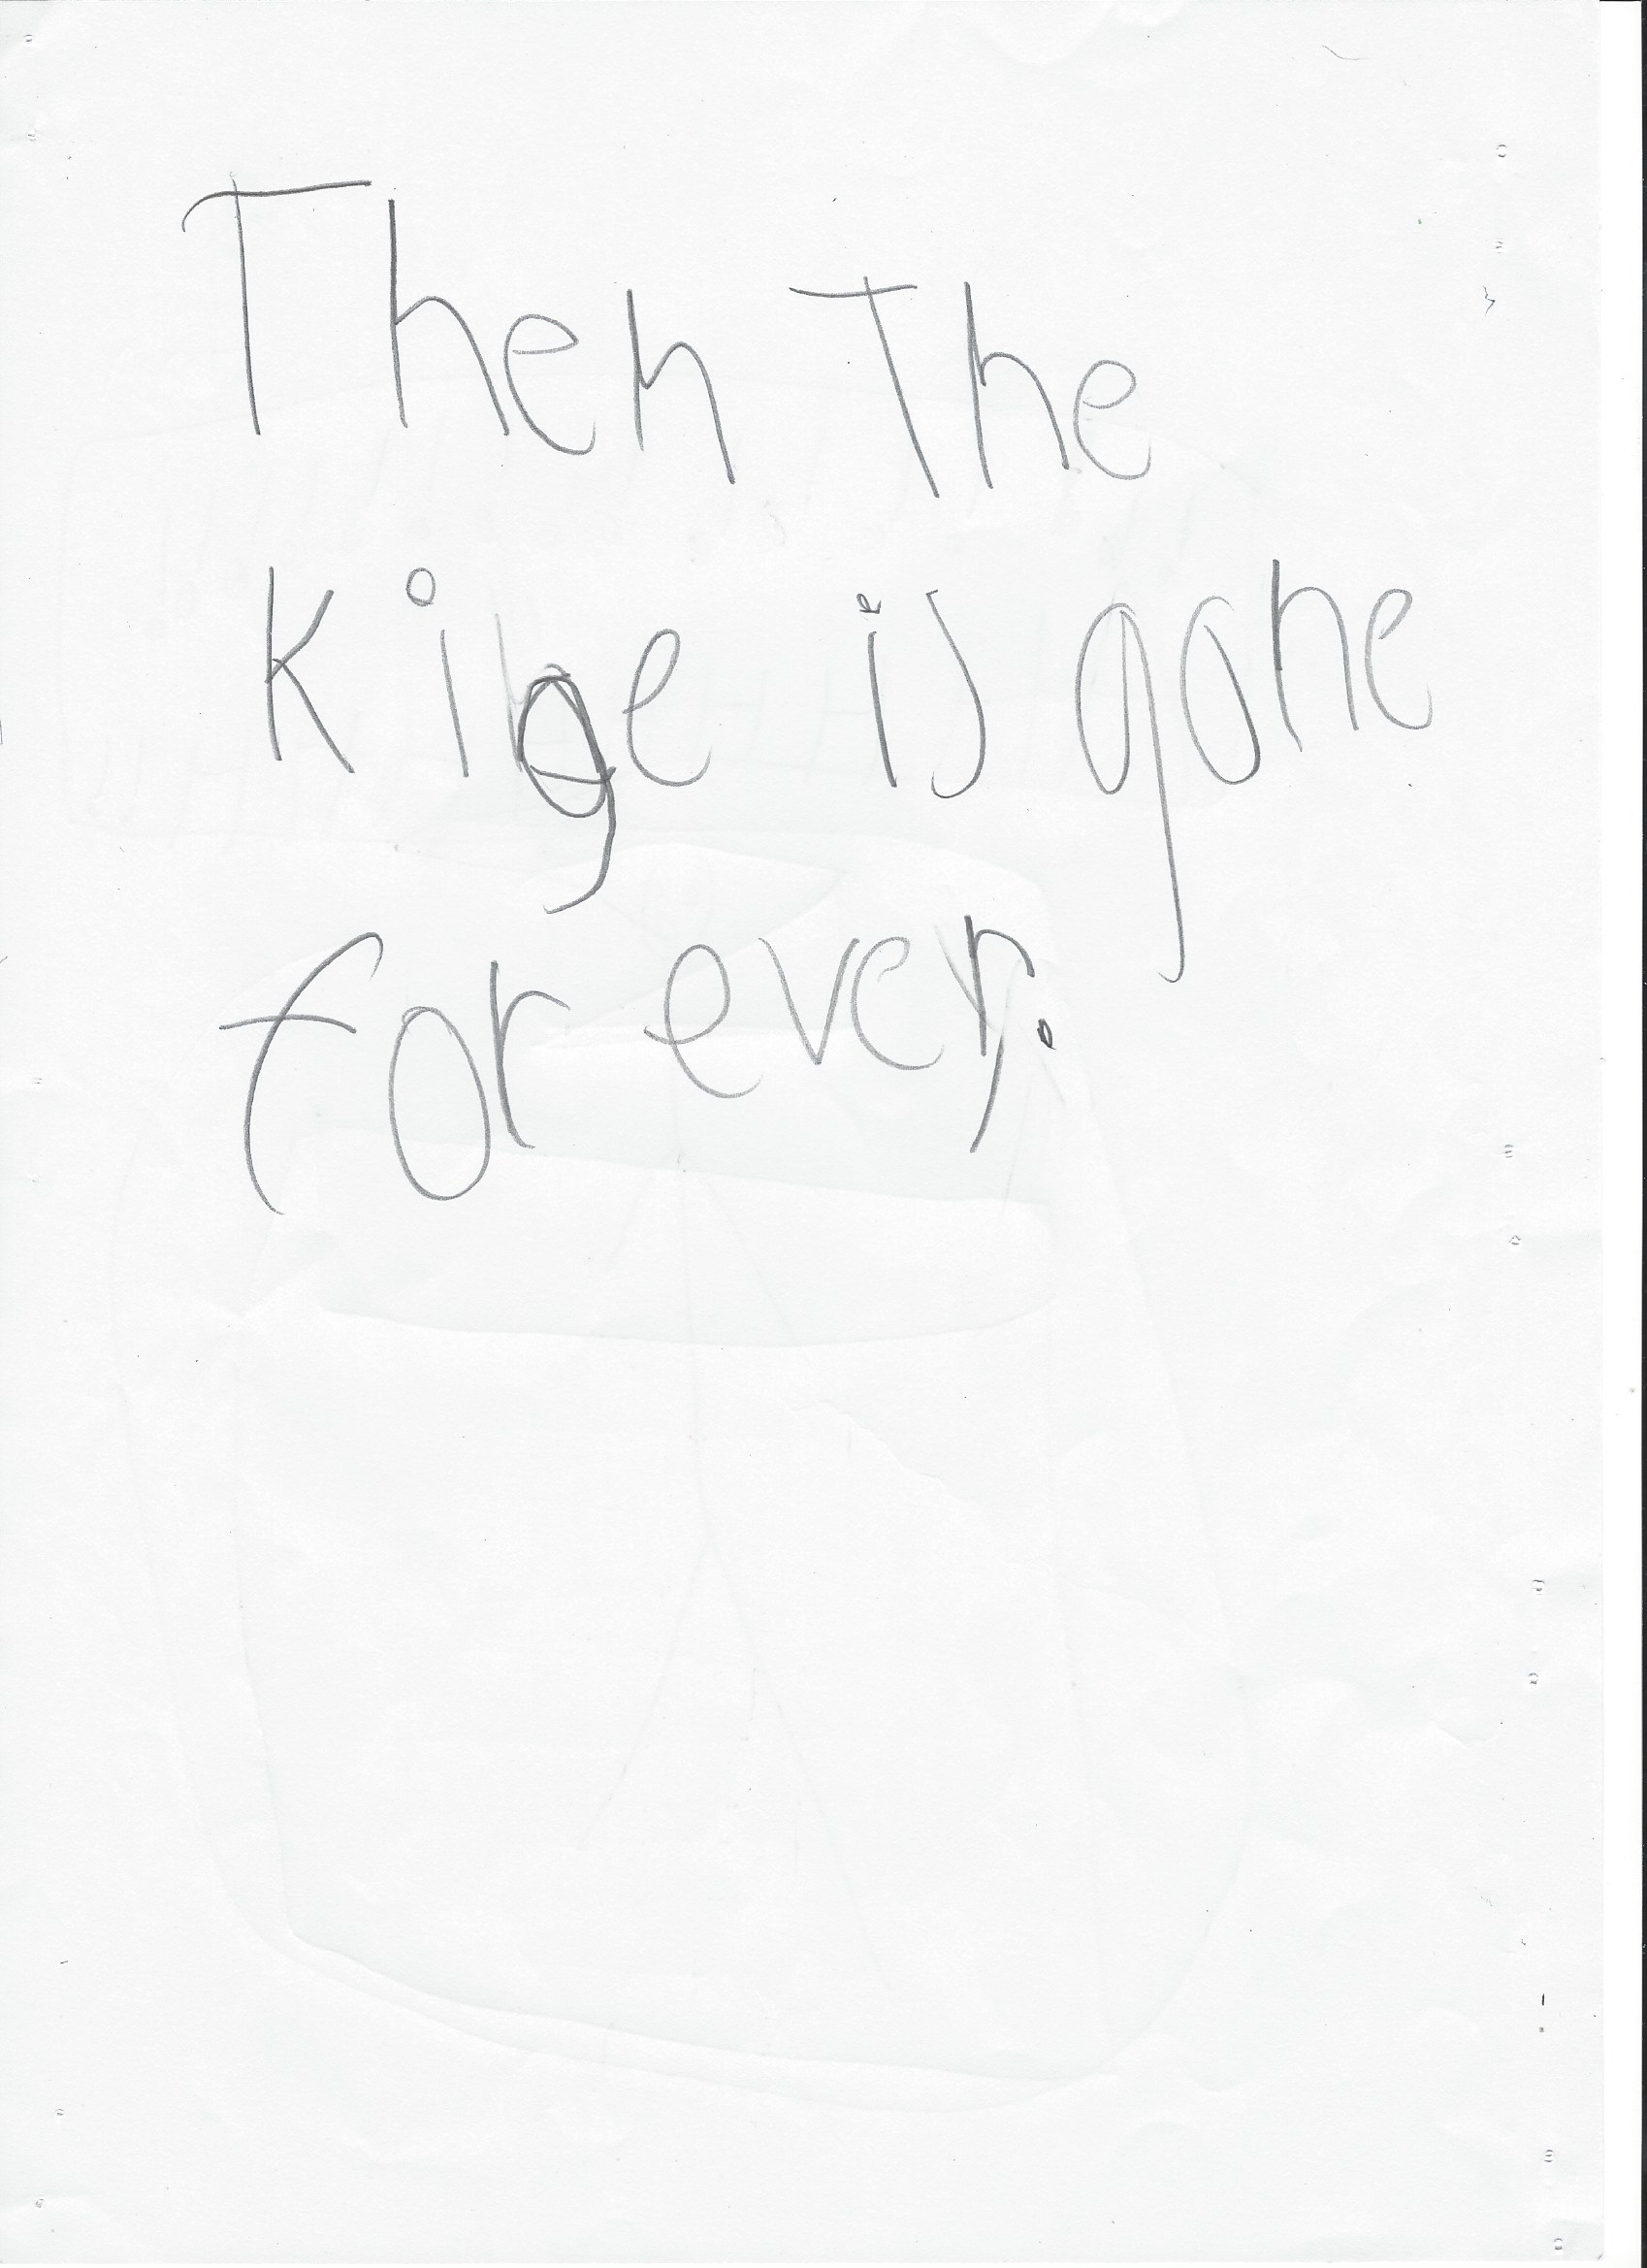 Then The
kinge is gone
for ever.